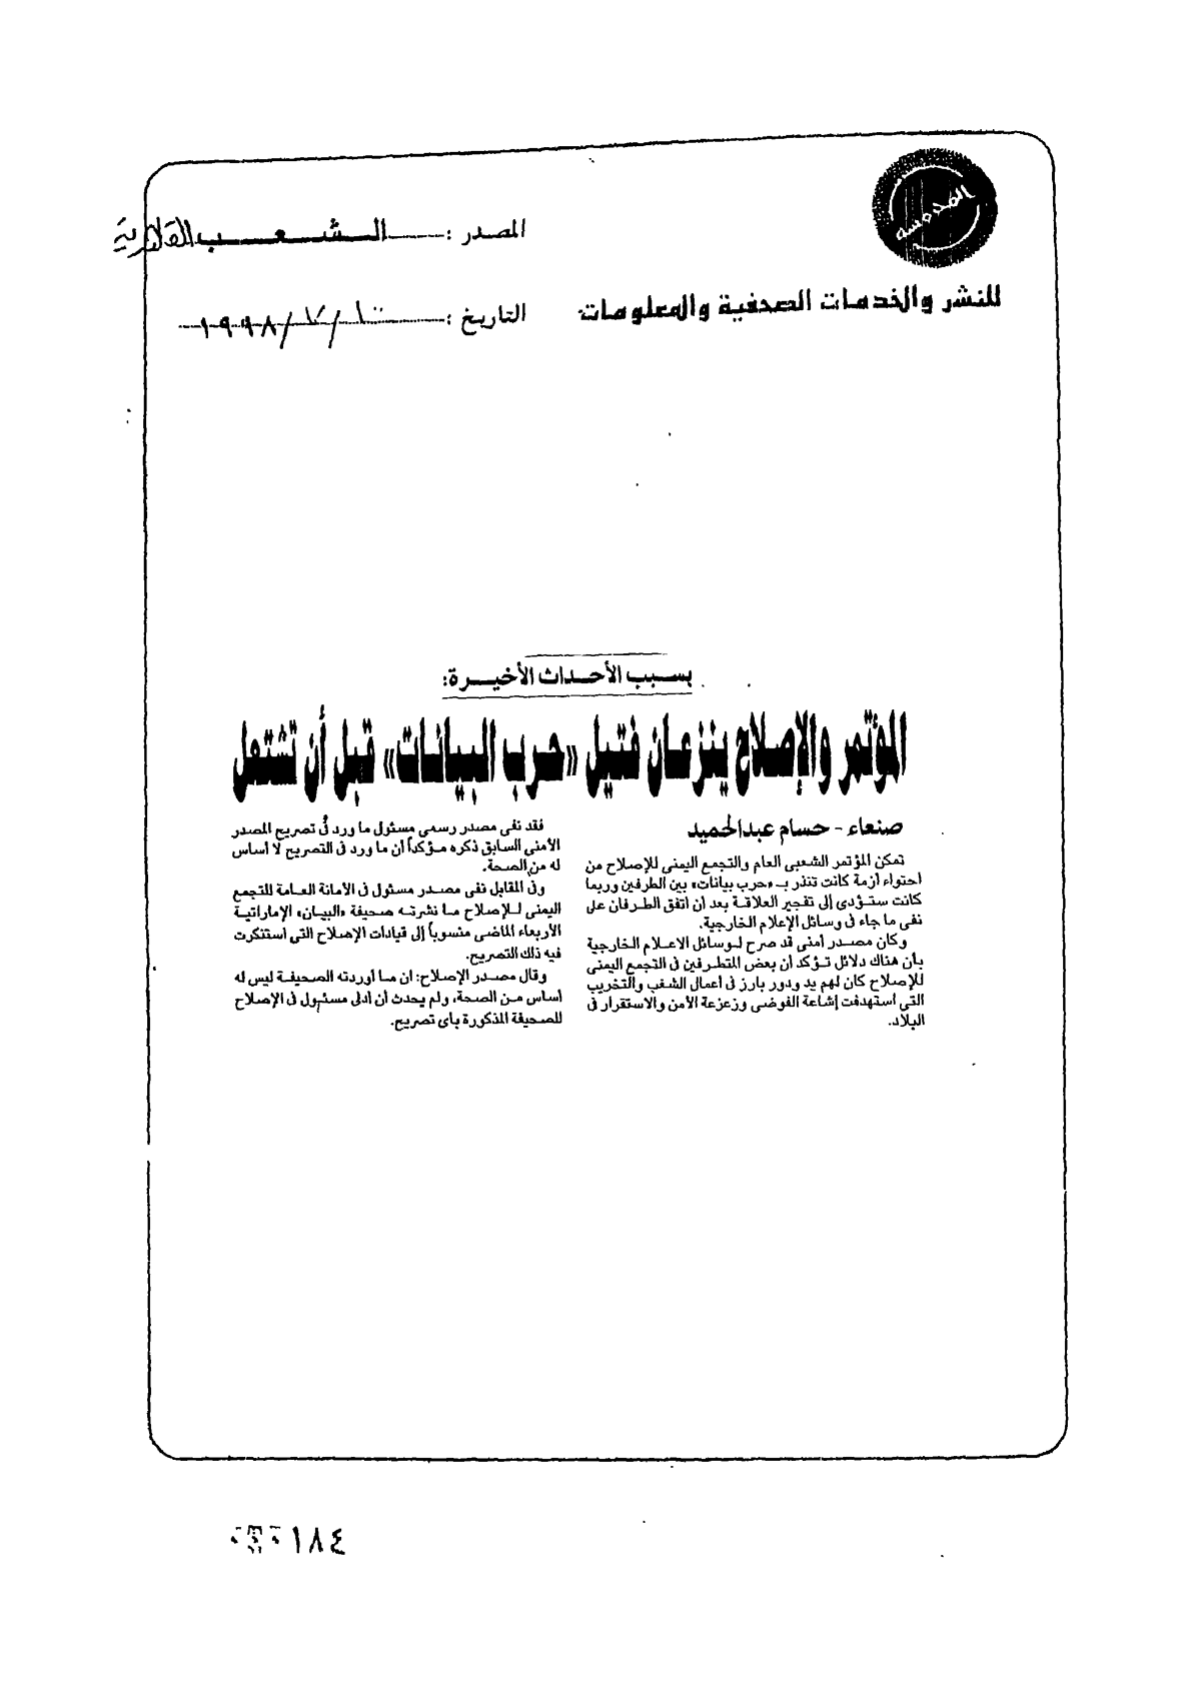 المصدر : الشعب القاهرية
للنشر والخدمات الصحفية والمعلومات
التاريخ : ١٩٩٨/٧/١٠
بسبب الأحداث الأخيرة:
المؤتمر والإصلاح ينزعان فتيل «حرب البيانات» قبل أن تشتعل
صنعاء - حسام عبدالحميد
تمكن المؤتمر الشعبى العام والتجمع اليمنى للإصلاح من
احتواء أزمة كانت تنذر بـ «حرب بيانات» بين الطرفين وربما
كانت ستؤدى إلى تفجير العلاقة بعد أن اتفق الطرفان على
نفى ما جاء فى وسائل الإعلام الخارجية.
وكان مصدر أمنى قد صرح لوسائل الاعلام الخارجية
بأن هناك دلائل تؤكد أن بعض المتطرفين فى التجمع اليمنى
للإصلاح كان لهم يد ودور بارز فى أعمال الشغب والتخريب
التى استهدفت إشاعة الفوضى وزعزعة الأمن والاستقرار فى
البلاد.
فقد نفى مصدر رسمى مسئول ما ورد فى تصريح المصدر
الأمنى السابق ذكره مؤكداً أن ما ورد فى التصريح لا أساس
له من الصحة.
وفى المقابل نفى مصدر مسئول فى الأمانة العامة للتجمع
اليمنى للإصلاح ما نشرته صحيفة «البيان» الإماراتية
الأربعاء الماضى منسوباً إلى قيادات الإصلاح التى استنكرت
فيه ذلك التصريح.
وقال مصدر الإصلاح: ان ما أوردته الصحيفة ليس له
أساس من الصحة، ولم يحدث أن أدلى مسئول فى الإصلاح
للصحيفة المذكورة بأى تصريح.
١٨٤